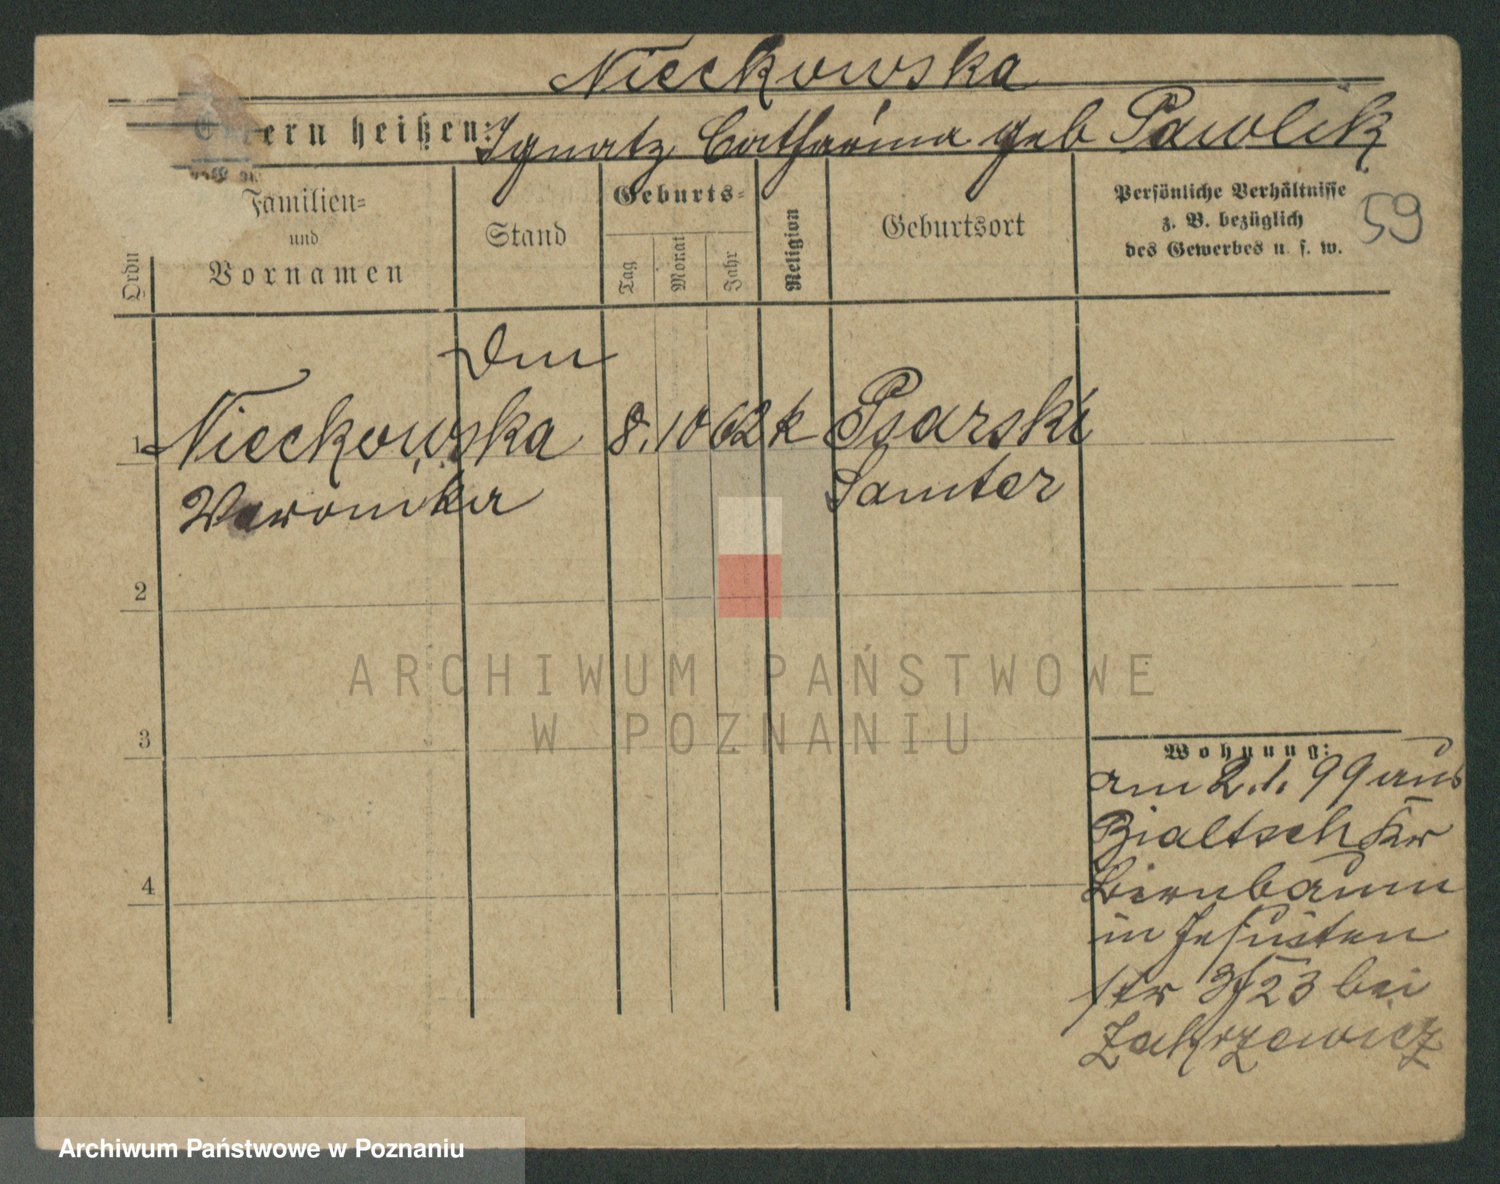 Nieckowska
Eltern heißen: Ignatz Catharina geb Pawlik
59
Ordn
Familien-
und
Vornamen
Stand
Geburts-
Tag
Monat
Jahr
Religion
Geburtsort
Persönliche Verhältnisse
z. B. bezüglich
des Gewerbes u. s. w.
1 Nieckowska 8. 10 62 k Psarski
Veronika Samter
2
3
4
Wohnung:
am 2.1.99 aus
Bialtsch Kr
Birnbaum
in Jesuiten
str 3/23 bei
Zakrzewicz
ARCHIWUM PAŃSTWOWE
W POZNANIU
Archiwum Państwowe w Poznaniu